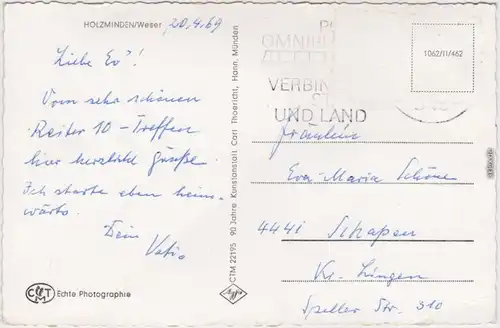 HOLZMINDEN/Weser 20.4.69
Liebe Ev'!
Vom sehr schönen
Reiter 10 - Treffen
hier herzliche Grüße.
Ich starte eben heim-
wärts.
Dein
Vati
CMT Echte Photographie
CTM 22195 90 Jahre Kunstanstalt Carl Thoericht, Hann. Münden
Agfa
VERBIN
UND LAND
1062/II/462
Fräulein
Eva-Maria Schöne
4441 Schapen
Kr. Lingen
Speller Str. 310